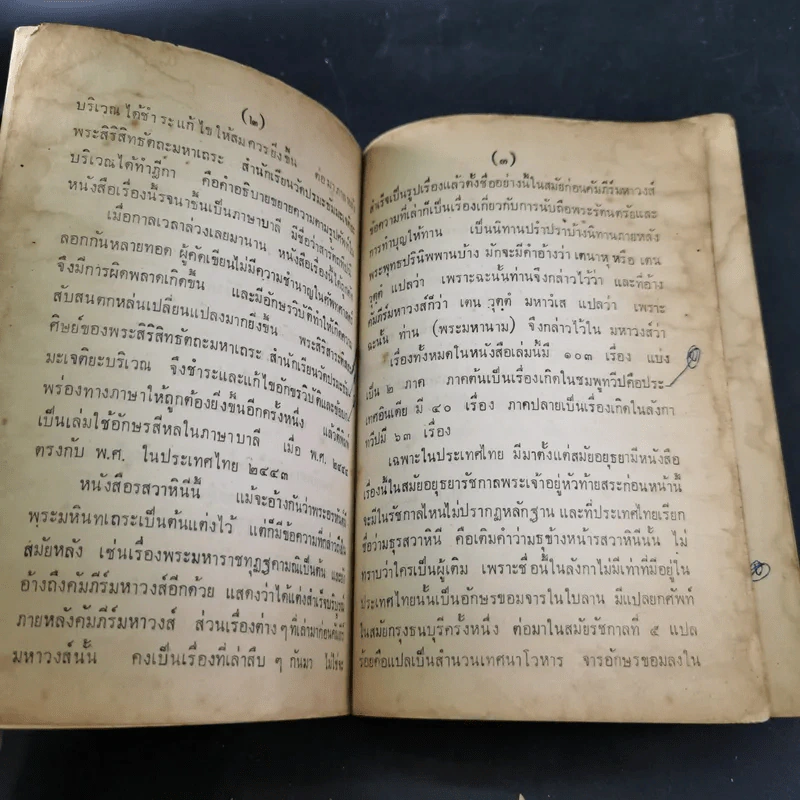 (๒)
บริเวณ ได้ชำระแก้ไขให้สมควรยิ่งขึ้น ต่อมา
พระสิริสิทธัตถะมหาเถระ สำนักเรียนวัดปรมะธัมมะเจติยะ
บริเวณได้ทำฎีกา คือคำอธิบายขยายความตามรูปศัพท์
หนังสือเรื่องนี้รจนาขึ้นเป็นภาษาบาลี มีชื่อว่าสารัตถทีปิกา
เมื่อกาลเวลาล่วงเลยมานาน หนังสือเรื่องนี้ได้ถูกคัด
ลอกกันหลายทอด ผู้คัดเขียนไม่มีความชำนาญในศัพทศาสตร์
จึงมีการผิดพลาดเกิดขึ้น และมีอักษรวิบัติทำให้เกิดความ
สับสนตกหล่นเปลี่ยนแปลงมากยิ่งขึ้น พระสิริสาร
ศิษย์ของพระสิริสิทธัตถะมหาเถระ สำนักเรียนวัดปรมะธัม
มะเจติยะบริเวณ จึงชำระและแก้ไขอักขรวิบัติและข้อบก
พร่องทางภาษาให้ถูกต้องยิ่งขึ้นอีกครั้งหนึ่ง แล้วตีพิมพ์
เป็นเล่มใช้อักษรสีหลในภาษาบาลี เมื่อ พ.ศ. ๒๔๔๔
ตรงกับ พ.ศ. ในประเทศไทย ๒๔๔๓
หนังสือรสวาหินีนี้ แม้จะอ้างกันว่าพระอรหันต์
พฺระมหินทเถระเป็นต้นแต่งไว้ แต่ก็มีข้อความที่กล่าวถึงใน
สมัยหลัง เช่นเรื่องพระมหาราชทุฏฐคามณีเป็นต้น และยัง
อ้างถึงคัมภีร์มหาวงส์อีกด้วย แสดงว่าได้แต่งสำเร็จบริบูรณ์
ภายหลังคัมภีร์มหาวงส์ ส่วนเรื่องต่าง ๆ ที่เล่ามาก่อนคัมภีร์
มหาวงส์นั้น คงเป็นเรื่องที่เล่าสืบ ๆ กันมา ไม่ใช่จะ
(๓)
สำเร็จเป็นรูปเรื่องแล้วตั้งชื่ออย่างนี้ในสมัยก่อนคัมภีร์มหาวงส์
ข้อความที่เล่าก็เป็นเรื่องเกี่ยวกับการนับถือพระรัตนตรัยและ
การทำบุญให้ทาน เป็นนิทานปรำปราบ้างนิทานภายหลัง
พระพุทธปรินิพพานบ้าง มักจะมีคำอ้างว่า เตนาหุ หรือ เตน
วุตฺตํ แปลว่า เพราะฉะนั้นท่านจึงกล่าวไว้ว่า และที่อ้าง
คัมภีร์มหาวงส์ก็ว่า เตน วุตฺตํ มหาวํเส แปลว่า เพราะ
ฉะนั้น ท่าน (พระมหานาม) จึงกล่าวไว้ใน มหาวงส์ว่า
เรื่องทั้งหมดในหนังสือเล่มนี้มี ๑๐๓ เรื่อง แบ่ง
เป็น ๒ ภาค ภาคต้นเป็นเรื่องเกิดในชมพูทวีปคือประ-
เทศอินเดีย มี ๔๐ เรื่อง ภาคปลายเป็นเรื่องเกิดในลังกา
ทวีปมี ๖๓ เรื่อง
เฉพาะในประเทศไทย มีมาตั้งแต่สมัยอยุธยามีหนังสือ
เรื่องนี้ในสมัยอยุธยารัชกาลพระเจ้าอยู่หัวท้ายสระก่อนหน้านี้
จะมีในรัชกาลไหนไม่ปรากฏหลักฐาน และที่ประเทศไทยเรียก
ชื่อว่ามธุรสวาหินี คือเติมคำว่ามธุข้างหน้ารสวาหินีนั้น ไม่
ทราบว่าใครเป็นผู้เติม เพราะชื่อนี้ในลังกาไม่มีเท่าที่มีอยู่ใน
ประเทศไทยนั้นเป็นอักษรขอมจารในใบลาน มีแปลยกศัพท์
ในสมัยกรุงธนบุรีครั้งหนึ่ง ต่อมาในสมัยรัชกาลที่ ๕ แปล
ร้อยคือแปลเป็นสำนวนเทศนาโวหาร จารอักษรขอมลงใน